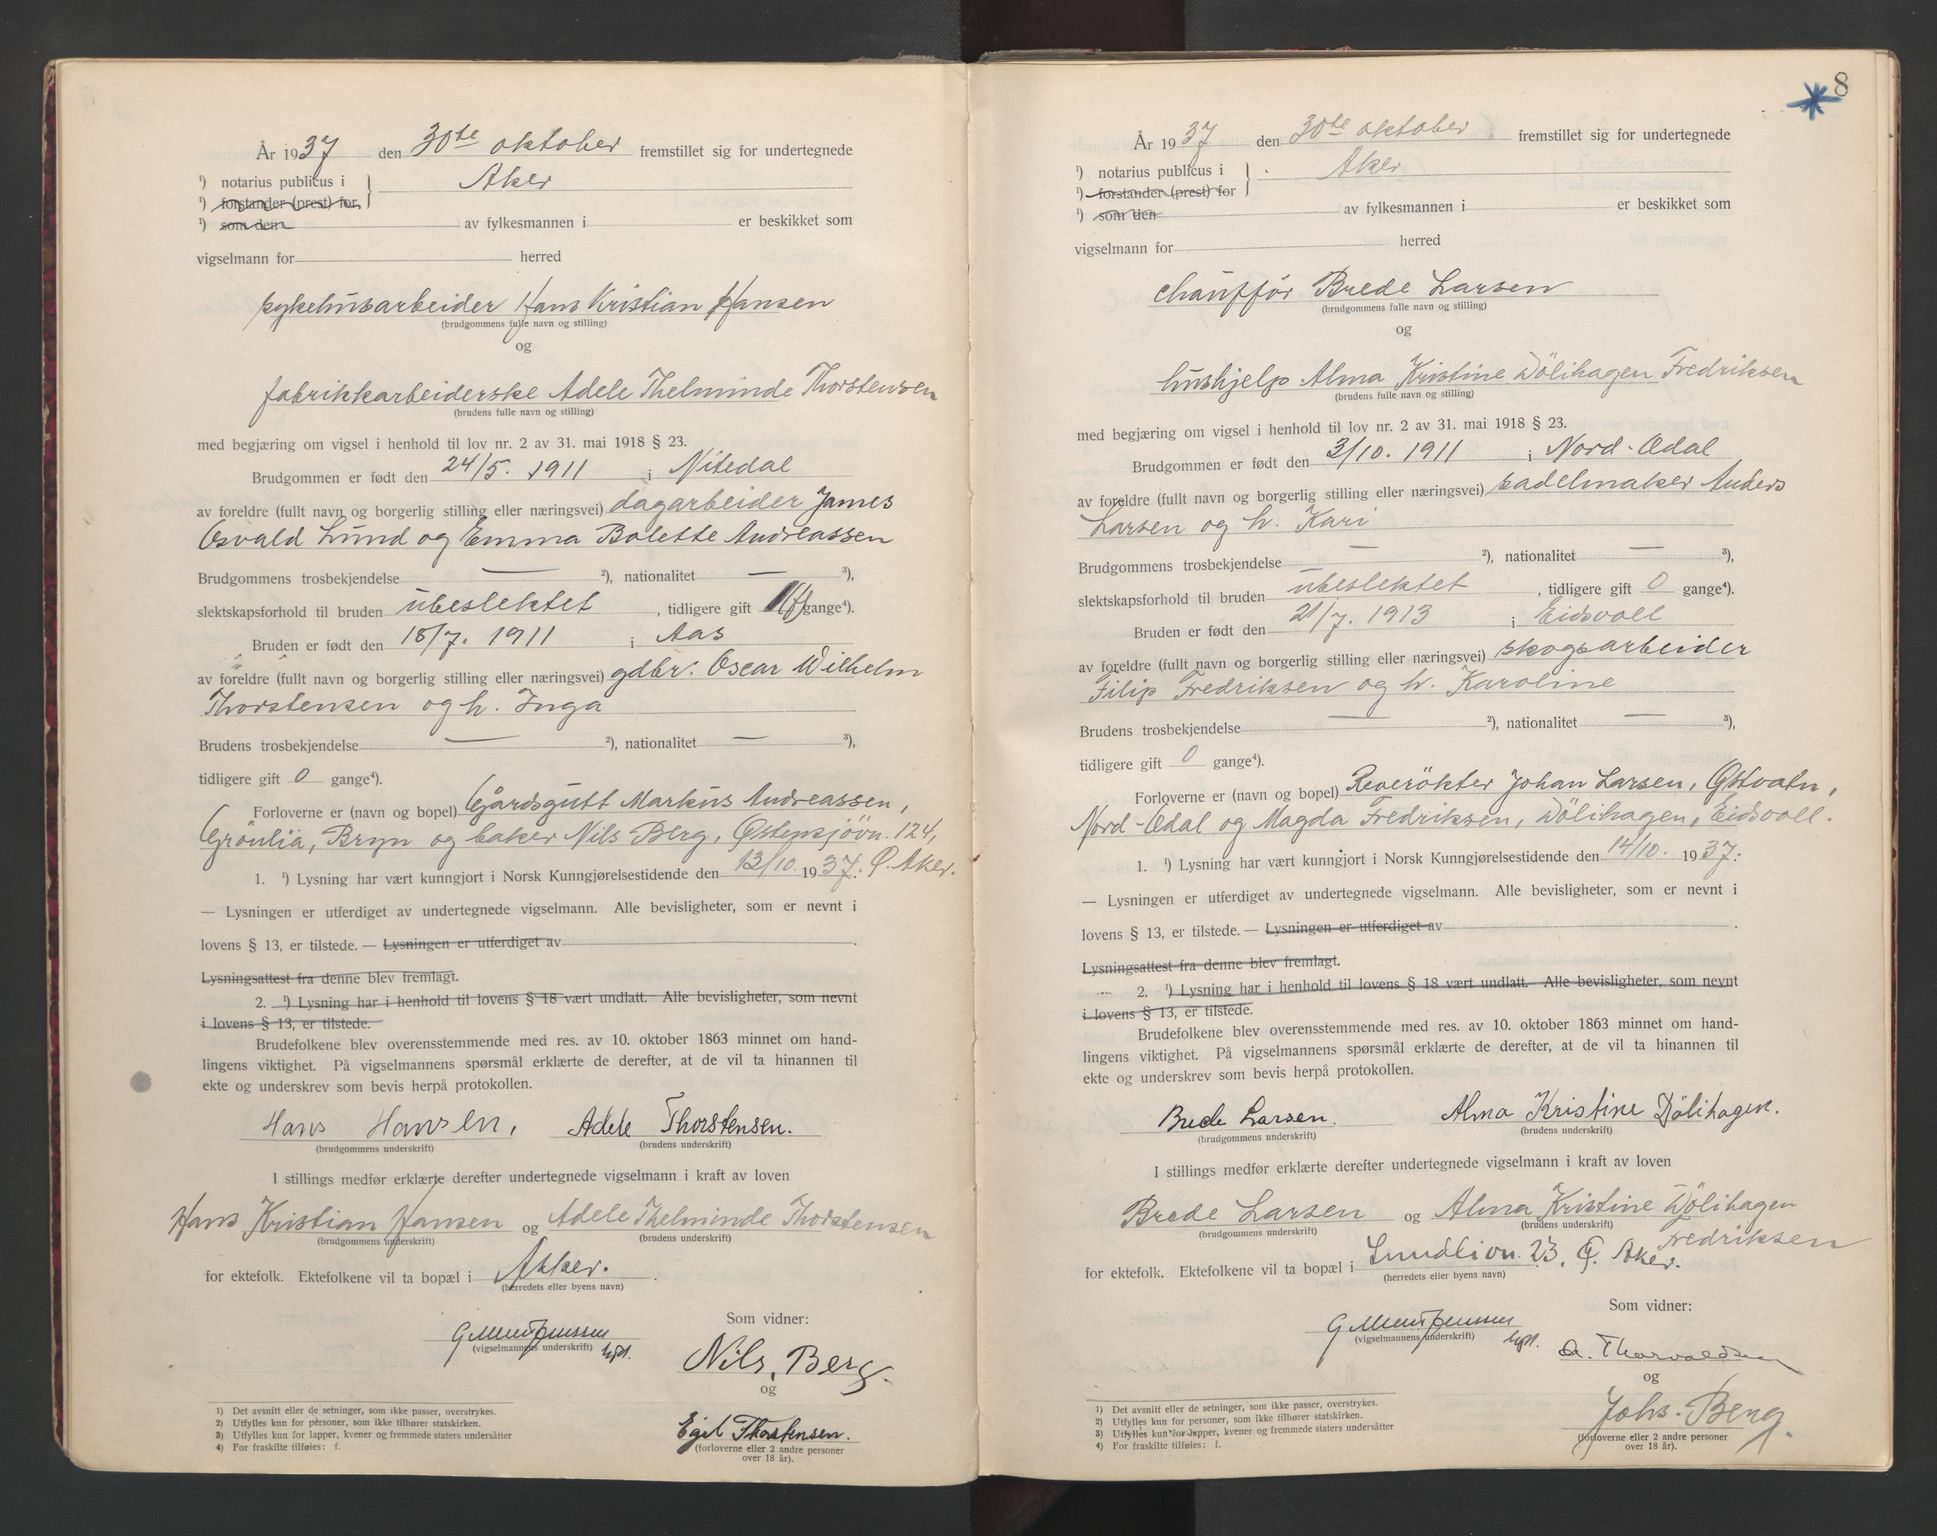 År 1937 den 30te oktober fremstillet sig for undertegnede
¹) notarius publicus i Aker
¹) forstander (prest) for
¹) som den av fylkesmannen i er beskikket som
vigselmann for herred
sykehusarbeider Hans Kristian Hansen
(brudgommens fulle navn og stilling)
og
fabrikkarbeiderske Adele Thelminde Thorstensen
(brudens fulle navn og stilling)
med begjæring om vigsel i henhold til lov nr. 2 av 31. mai 1918 § 23.
Brudgommen er født den 24/5. 1911 i Nitedal
av foreldre (fullt navn og borgerlig stilling eller næringsvei) dagarbeider James
Osvald Lund og Emma Bolette Andreassen
Brudgommens trosbekjendelse — ²), nationalitet — ³),
slektskapsforhold til bruden ubeslektet, tidligere gift 1(f) gange⁴).
Bruden er født den 18/7. 1911 i Aas
av foreldre (fullt navn og borgerlig stilling eller næringsvei) gdbr. Oscar Wilhelm
Thorstensen og h. Inga
Brudens trosbekjendelse — ²), nationalitet — ³),
tidligere gift 0 gange⁴).
Forloverne er (navn og bopel) Gårdsgutt Markus Andreassen,
Grönlia, Bryn og baker Nils Berg, Østensjövn. 124,
1. ¹) Lysning har vært kunngjort i Norsk Kunngjørelsestidende den 13/10. 1937. Ø. Aker.
— Lysningen er utferdiget av undertegnede vigselmann. Alle bevisligheter, som er nevnt i
lovens § 13, er tilstede. — Lysningen er utferdiget av .
Lysningsattest fra denne blev fremlagt.
2. ¹) Lysning har i henhold til lovens § 18 vært undlatt. Alle bevisligheter, som nevnt
i lovens § 13, er tilstede.
Brudefolkene blev overensstemmende med res. av 10. oktober 1863 minnet om hand-
lingens viktighet. På vigselmannens spørsmål erklærte de derefter, at de vil ta hinannen til
ekte og underskrev som bevis herpå protokollen.
Hans Hansen, Adele Thorstensen.
(brudgommens underskrift) (brudens underskrift)
I stillings medfør erklærte derefter undertegnede vigselmann i kraft av loven
Hans Kristian Hansen og Adele Thelminde Thorstensen
(brudgommens underskrift) (brudens underskrift)
for ektefolk. Ektefolkene vil ta bopæl i Aker.
(herredets eller byens navn)
Som vidner:
(vigselmannens underskrift)
Nils Berg.
og
Egil Thorstensen.
(forloverne eller 2 andre personer
over 18 år).
1) Det avsnitt eller de setninger, som ikke passer, overstrykes.
2) Utfylles kun for personer, som ikke tilhører statskirken.
3) Utfylles kun for lapper, kvener og fremmede staters undersåtter
4) For fraskilte tilføies: f.
8
År 1937 den 30te oktober fremstillet sig for undertegnede
¹) notarius publicus i Aker
¹) forstander (prest) for
¹) som den av fylkesmannen i er beskikket som
vigselmann for herred
chaufför Brede Larsen
(brudgommens fulle navn og stilling)
og
hushjelp Alma Kristine Dölihagen Fredriksen
(brudens fulle navn og stilling)
med begjæring om vigsel i henhold til lov nr. 2 av 31. mai 1918 § 23.
Brudgommen er født den 3/10. 1911 i Nord-Odal
av foreldre (fullt navn og borgerlig stilling eller næringsvei) sadelmaker Anders
Larsen og h. Kari
Brudgommens trosbekjendelse — ²), nationalitet — ³),
slektskapsforhold til bruden ubeslektet, tidligere gift 0 gange⁴).
Bruden er født den 21/7. 1913 i Eidsvoll
av foreldre (fullt navn og borgerlig stilling eller næringsvei) skogsarbeider
Filip Fredriksen og h. Karoline
Brudens trosbekjendelse — ²), nationalitet — ³),
tidligere gift 0 gange⁴).
Forloverne er (navn og bopel) Reverökter Johan Larsen, Østvatn,
Nord-Odal og Magda Fredriksen, Dölihagen, Eidsvoll.
1. ¹) Lysning har vært kunngjort i Norsk Kunngjørelsestidende den 14/10. 1937.
— Lysningen er utferdiget av undertegnede vigselmann. Alle bevisligheter, som er nevnt i
lovens § 13, er tilstede. — Lysningen er utferdiget av .
Lysningsattest fra denne blev fremlagt.
2. ¹) Lysning har i henhold til lovens § 18 vært undlatt. Alle bevisligheter, som nevnt
i lovens § 13, er tilstede.
Brudefolkene blev overensstemmende med res. av 10. oktober 1863 minnet om hand-
lingens viktighet. På vigselmannens spørsmål erklærte de derefter, at de vil ta hinannen til
ekte og underskrev som bevis herpå protokollen.
Brede Larsen. Alma Kristine Dölihagen.
(brudgommens underskrift) (brudens underskrift)
I stillings medfør erklærte derefter undertegnede vigselmann i kraft av loven
Brede Larsen og Alma Kristine Dölihagen
(brudgommens underskrift) (brudens underskrift) Fredriksen
for ektefolk. Ektefolkene vil ta bopæl i Lundlivn. 23, Ø. Aker.
(herredets eller byens navn)
Som vidner:
(vigselmannens underskrift)
A. Thorvaldsen
og
Johs. Berg
(forloverne eller 2 andre personer
over 18 år).
1) Det avsnitt eller de setninger, som ikke passer, overstrykes.
2) Utfylles kun for personer, som ikke tilhører statskirken.
3) Utfylles kun for lapper, kvener og fremmede staters undersåtter
4) For fraskilte tilføies: f.